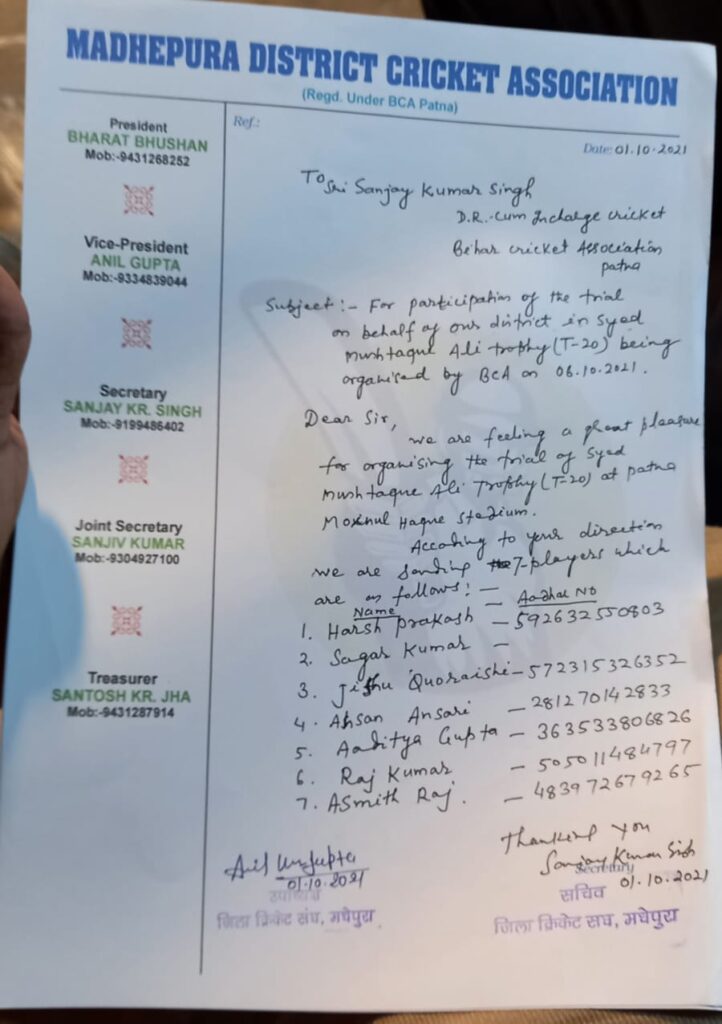 MADHEPURA DISTRICT CRICKET ASSOCIATION
(Regd. Under BCA Patna)
President
BHARAT BHUSHAN
Mob:-9431268252
Vice-President
ANIL GUPTA
Mob:-9334839044
Secretary
SANJAY KR. SINGH
Mob:-9199486402
Joint Secretary
SANJIV KUMAR
Mob:-9304927100
Treasurer
SANTOSH KR. JHA
Mob:-9431287914
Ref.:
Date: 01.10.2021
To Sri Sanjay Kumar Singh
D.R.-Cum Incharge cricket
Behar cricket Association
patna
Subject:- For participation of the trial
on behalf of our district in Syed
Mushtaque Ali trophy (T-20) being
organised by BCA on 06.10.2021.
Dear Sir,
we are feeling a great pleasure
for organising the trial of Syed
Mushtaque Ali Trophy (T-20) at patna
Moinul Haque Stadium.
According to your direction
we are sending 7-players which
are as follows:-
Name - Aadhal No
1. Harsh prakash - 592632550803
2. Sagar Kumar -
3. Jishu Quoraishi - 572315326352
4. Ahsan Ansari - 281270142833
5. Aaditya Gupta - 363533806826
6. Raj Kumar - 505011484797
7. ASmith Raj. - 483972679265
Thanking you
Sanjay Kumar Singh
Secretary
01.10.2021
सचिव
जिला क्रिकेट संघ, मधेपुरा
Anil Gupta
01.10.2021
उपाध्यक्ष
जिला क्रिकेट संघ, मधेपुरा